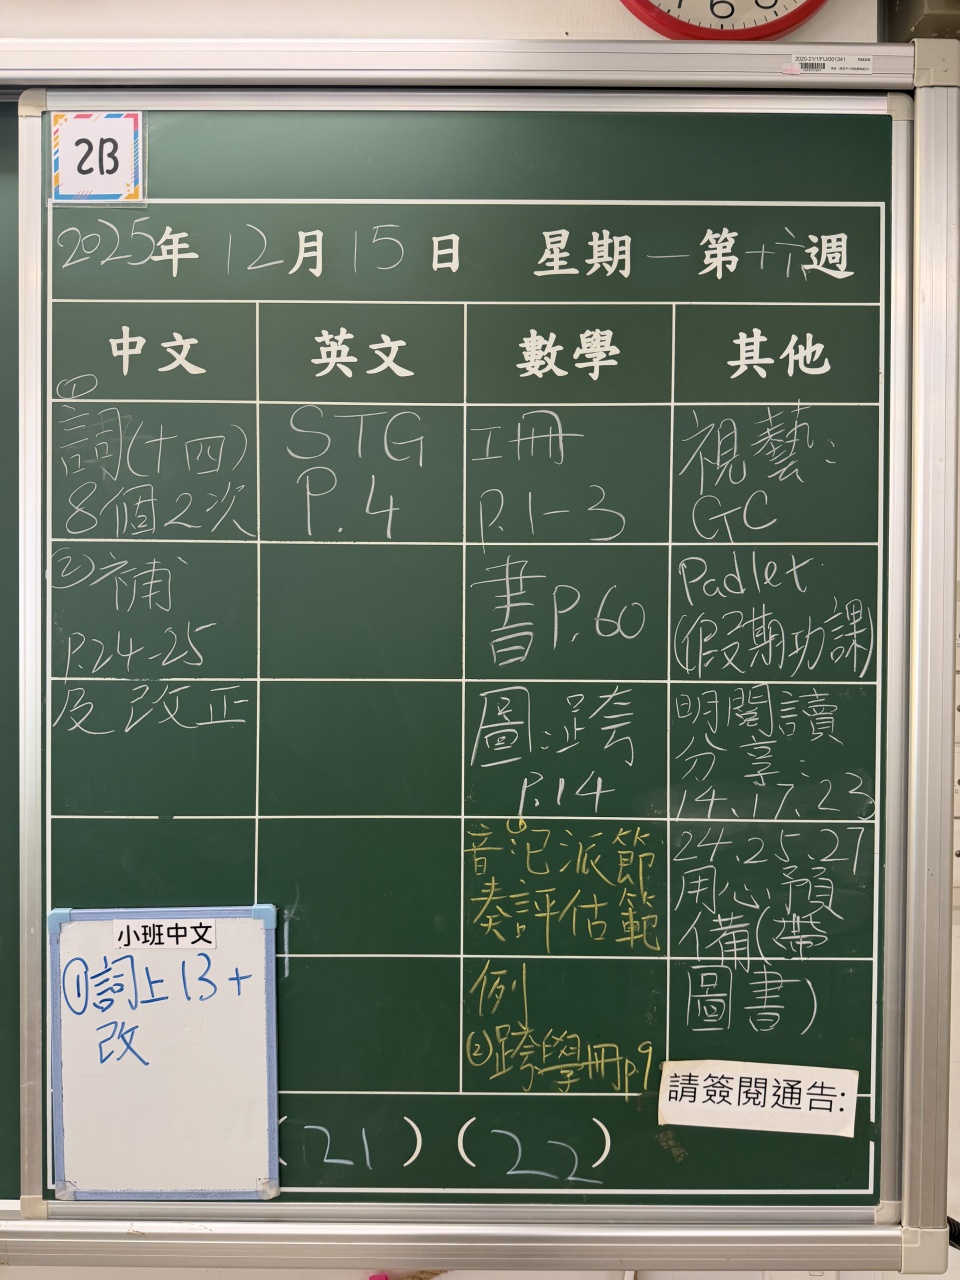 2020-21/1/FU/001341
2B
2025年12月15日 星期一第十六週
中文
①
詞(十四)
8個2次
②補
P.24-25
及改正
英文
STG
P.4
數學
工冊
P.1-3
書P.60
圖:跨
P.14
音①記派節
奏評估範
例
②跨學冊p.9
其他
視藝:
GC
Padlet
(假期功課)
明閱讀
分享:
14.17.23
24.25.27
用心預
備(帶
圖書)
小班中文
①詞上13+
改
(21)(22)
請簽閱通告: